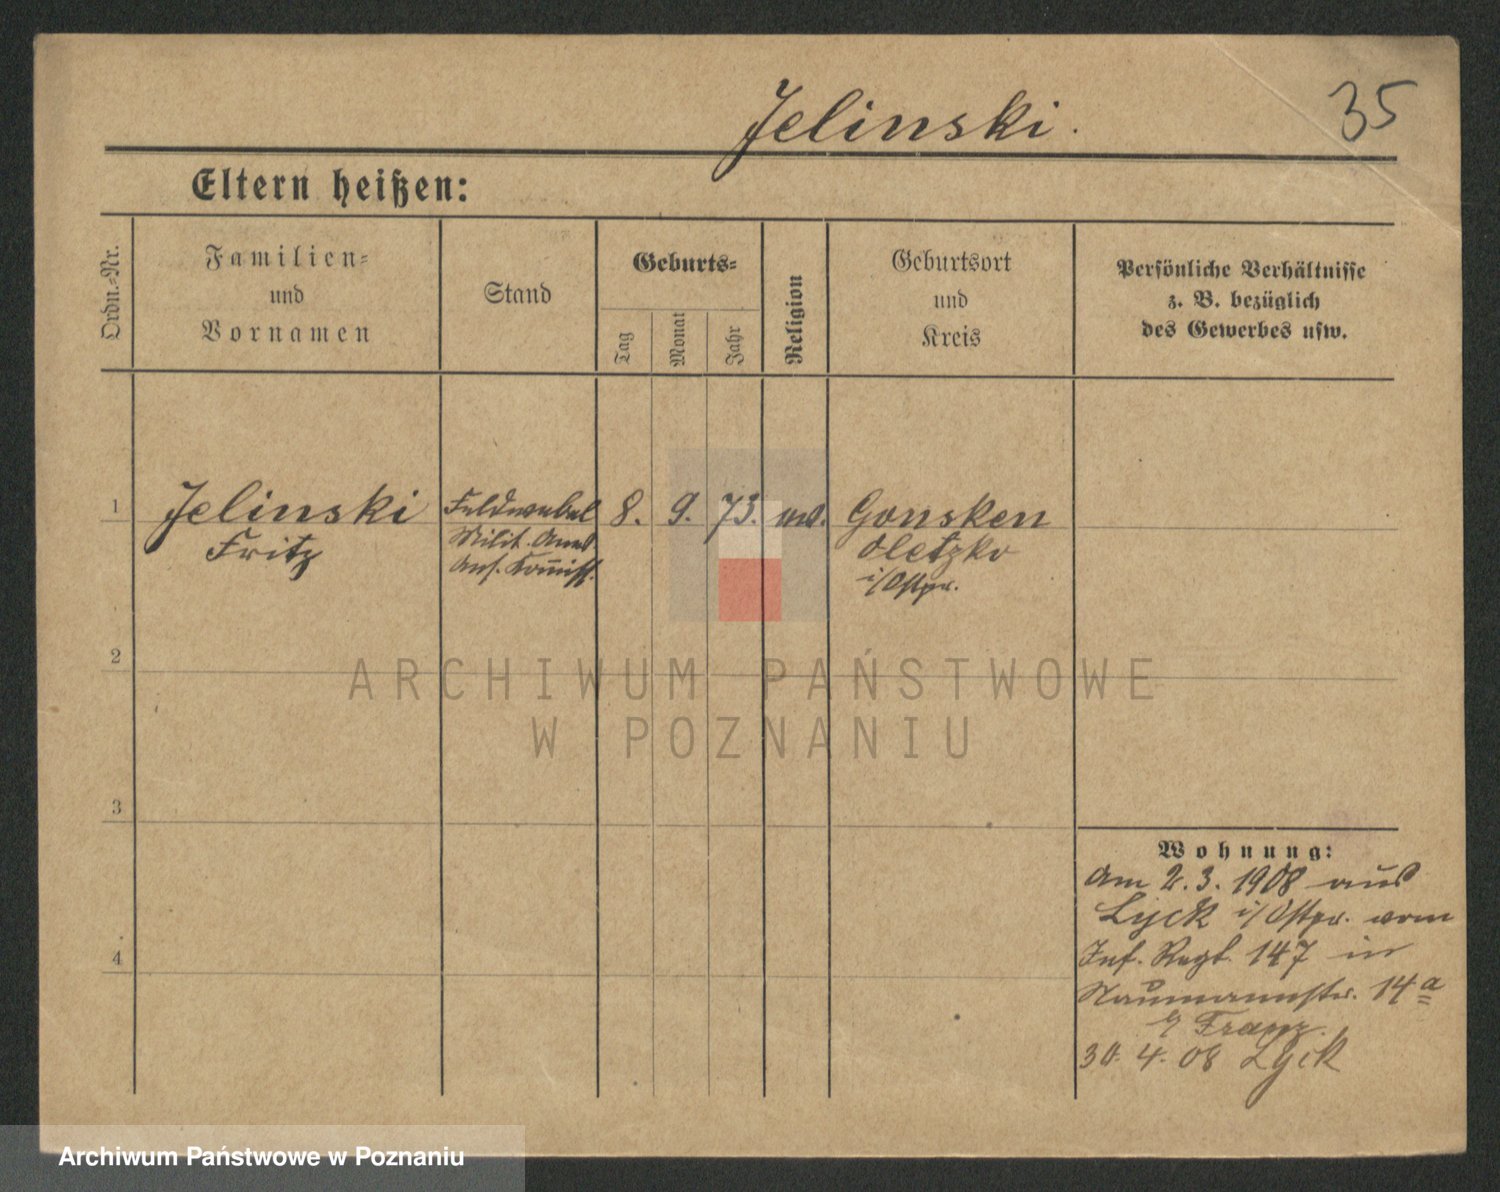 Jelinski.
35
Eltern heißen:
Ordn.-Nr.
Familien-
und
Vornamen
Stand
Geburts-
Tag
Monat
Jahr
Religion
Geburtsort
und
Kreis
Persönliche Verhältnisse
z. B. bezüglich
des Gewerbes usw.
1
Jelinski
Fritz
Feldwebel
Milit. Anw.
8. 9. 73. ev.
Gonsken
Oletzko
i/Ostpr.
2
3
4
Wohnung:
Am 2.3.1908 aus
Lyck i/Ostpr. vom
Inf. Regt. 147 in
Naumannstr. 14a
Franz.
30. 4. 08 Lyck
ARCHIWUM PAŃSTWOWE
W POZNANIU
Archiwum Państwowe w Poznaniu